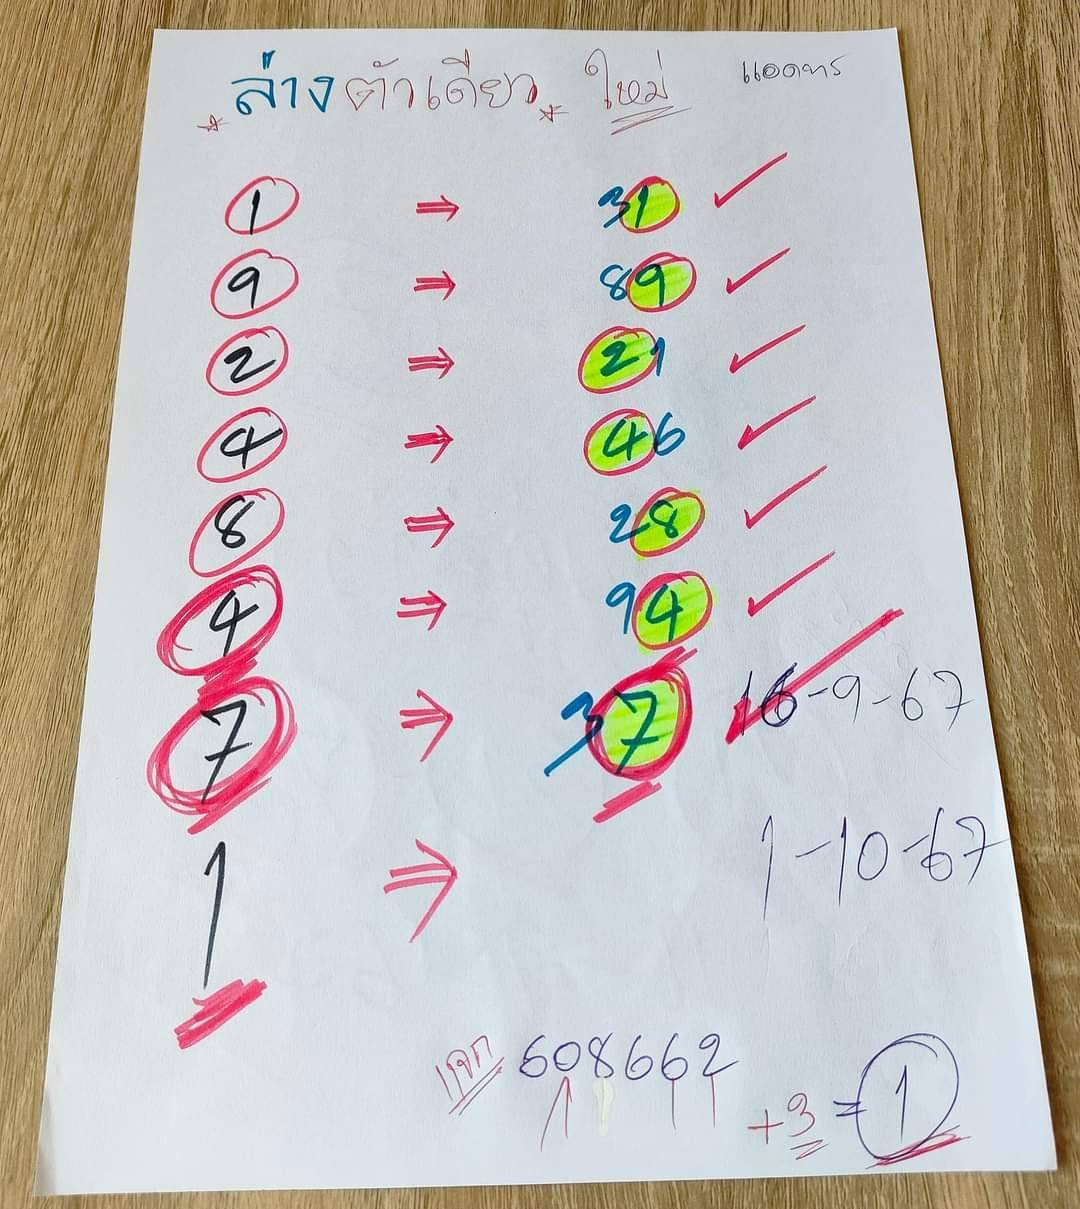 * ล่างตัวเดียว * ใหม่ แอดทร
1 ⇒ 31 ✓
9 ⇒ 89 ✓
2 ⇒ 21 ✓
4 ⇒ 46 ✓
8 ⇒ 28 ✓
4 ⇒ 94 ✓
7 ⇒ 37 ✓ 16-9-67
1 ⇒ 1-10-67
608662
+3 = 1